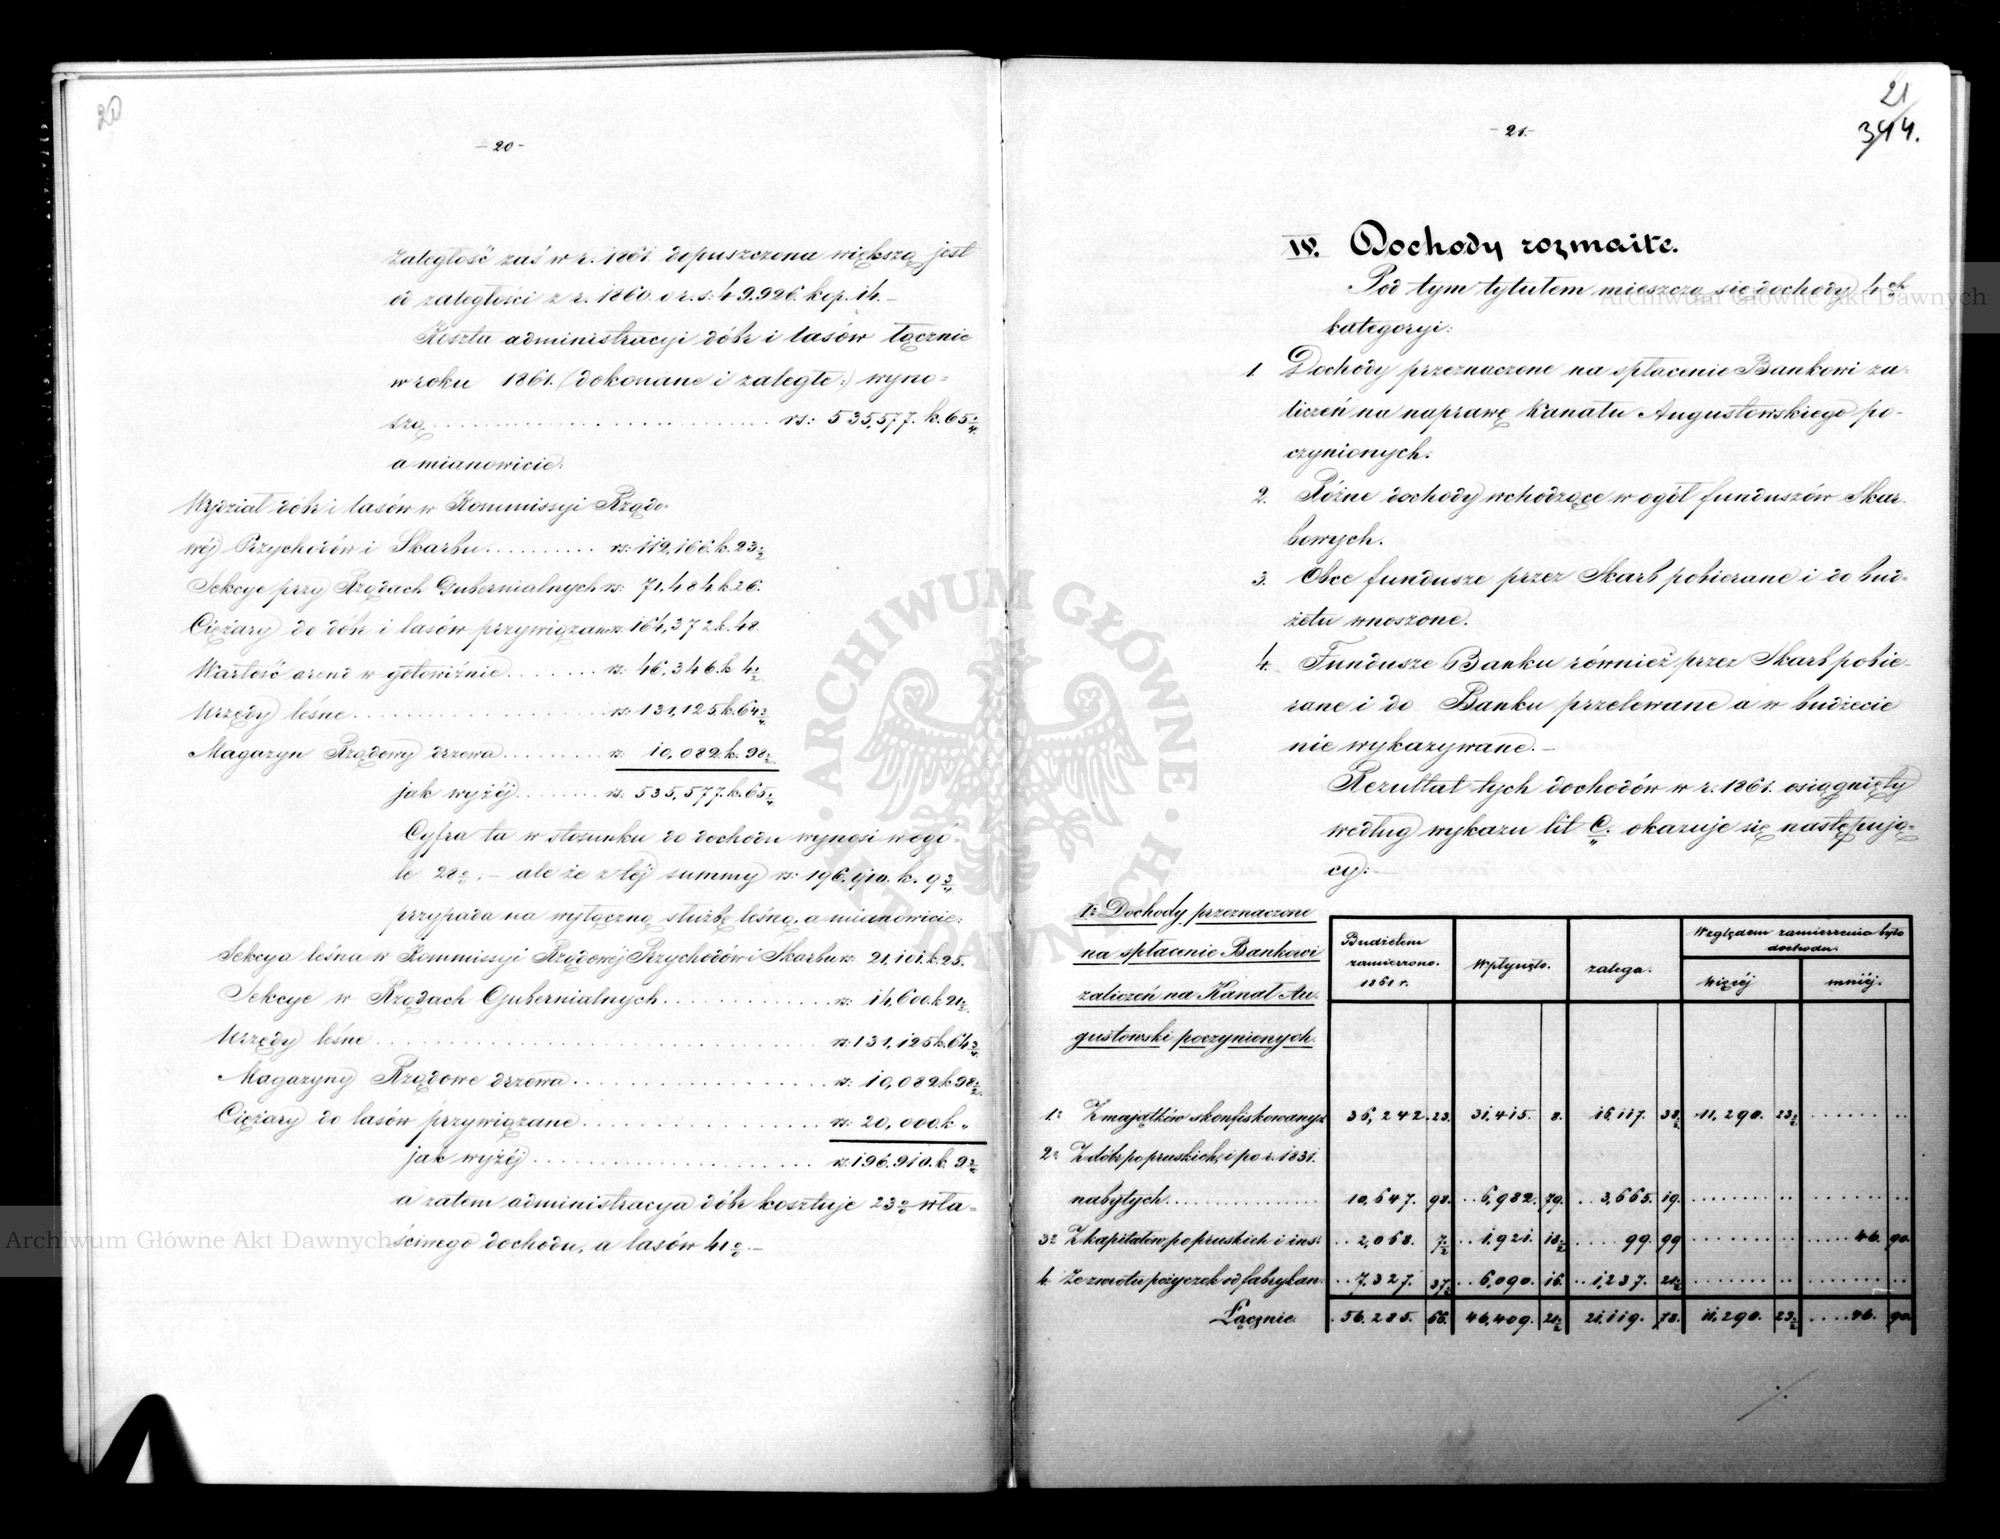 20
- 20 -
Zaległość zaś w r. 1861. dopuszczona większą jest
od zaległości z r. 1860. o r. s: 49,926. kop. 14. -
Kosztu administracyi dóbr i lasów łącznie
w roku 1861. (dokonane i zaległe:) wyno=
szą .......... rs: 535,577. k. 65 3/4.
a mianowicie:
Wydział dóbr i lasów w Kommissyi Rządo=
wéj Przychodów i Skarbu .......... rs: 112,166. k. 23 1/2
Sekcye przy Rządach Gubernialnych rs: 71,484 k. 26.
Ciężary do dóbr i lasów przywiązane rs: 164,372 k. 48.
Wartość arend w gotowiźnie ....... rs: 46,346. k. 4 1/2
Urzędy leśne .......... rs: 131,125 k. 64 3/4
Magazyn Rządowy drzewa .......... rs: 10,082. k. 98 1/2.
jak wyżéj ........ rs: 535,577. k. 65 3/4
Cyfra ta w stosunku do dochodu wynosi w ogó=
le 28%; - ale że z téj summy rs: 196,910. k. 9 3/4
przypada na wyłączną służbę leśną, a mianowicie:
Sekcya leśna w Kommissyi Rządowéj Przychodów i Skarbu rs: 21,101. k. 25.
Sekcye w Rządach Gubernialnych .......... rs: 14,600. k. 21 1/2.
Urzędy leśne .......... rs: 131,125 k. 64 3/4
Magazyny Rządowe drzewa .......... rs: 10,082 k. 98 1/2.
Ciężary do lasów przywiązane .......... rs: 20,000. k „
jak wyżéj .......... rs: 196,910. k. 9 3/4
a zatem administracya dóbr kosztuje 23% wła=
ściwego dochodu, a lasów 41%. -
21
344.
- 21. -
IV. Dochody rozmaite.
Pod tym tytułem mieszczą się dochody 4ch
kategoryi:
1. Dochody przeznaczone na spłacenie Bankowi za=
liczeń na naprawę Kanału Augustowskiego po=
czynionych.
2. Różne dochody wchodzące w ogół funduszów Skar=
bowych.
3. Obce fundusze przez Skarb pobierane i do bud=
żetu wnoszone.
4. Fundusze Banku również przez Skarb pobie=
rane i do Banku przelewane a w budżecie
nie wykazywane. -
Rezultat tych dochodów w r. 1861. osiągnięty
według wykazu lit C. okazuje się następują=
cy: -
1o Dochody przeznaczone
na spłacenie Bankowi
zaliczeń na Kanał Au=
gustowski poczynionych.
Budżetem zamierzono. 1861 r. Wpłynęło. zalega. Względem zamierzenia było dochodu.
więcéj mniéj.
1o Z majątków skonfiskowanych 36,242. 23. 31,415. 8. 16,117. 38 1/2 11,290. 23 1/2 ...... ..
2o Z dóbr popruskich, i po r. 1831.
nabytych .......... 10,647. 98. 6,982. 79. 3,665. 19. ...... .. ...... ..
3o Z kapitałów popruskich i ins: 2,068. 7 1/2 1,921. 18 1/2 99. 99 ...... .. 46. 90.
4. Ze zwrotu pożyczek od fabrykan: 7,327. 37 1/2 6,090. 16. 1,237. 21 1/2 ...... .. ...... ..
Łącznie. 56,285. 66. 46,409. 21 1/2 21,119. 78. 11,290. 23 1/2 46. 90.
ARCHIWUM GŁÓWNE AKT DAWNYCH
Archiwum Główne Akt Dawnych
Archiwum Główne Akt Dawnych